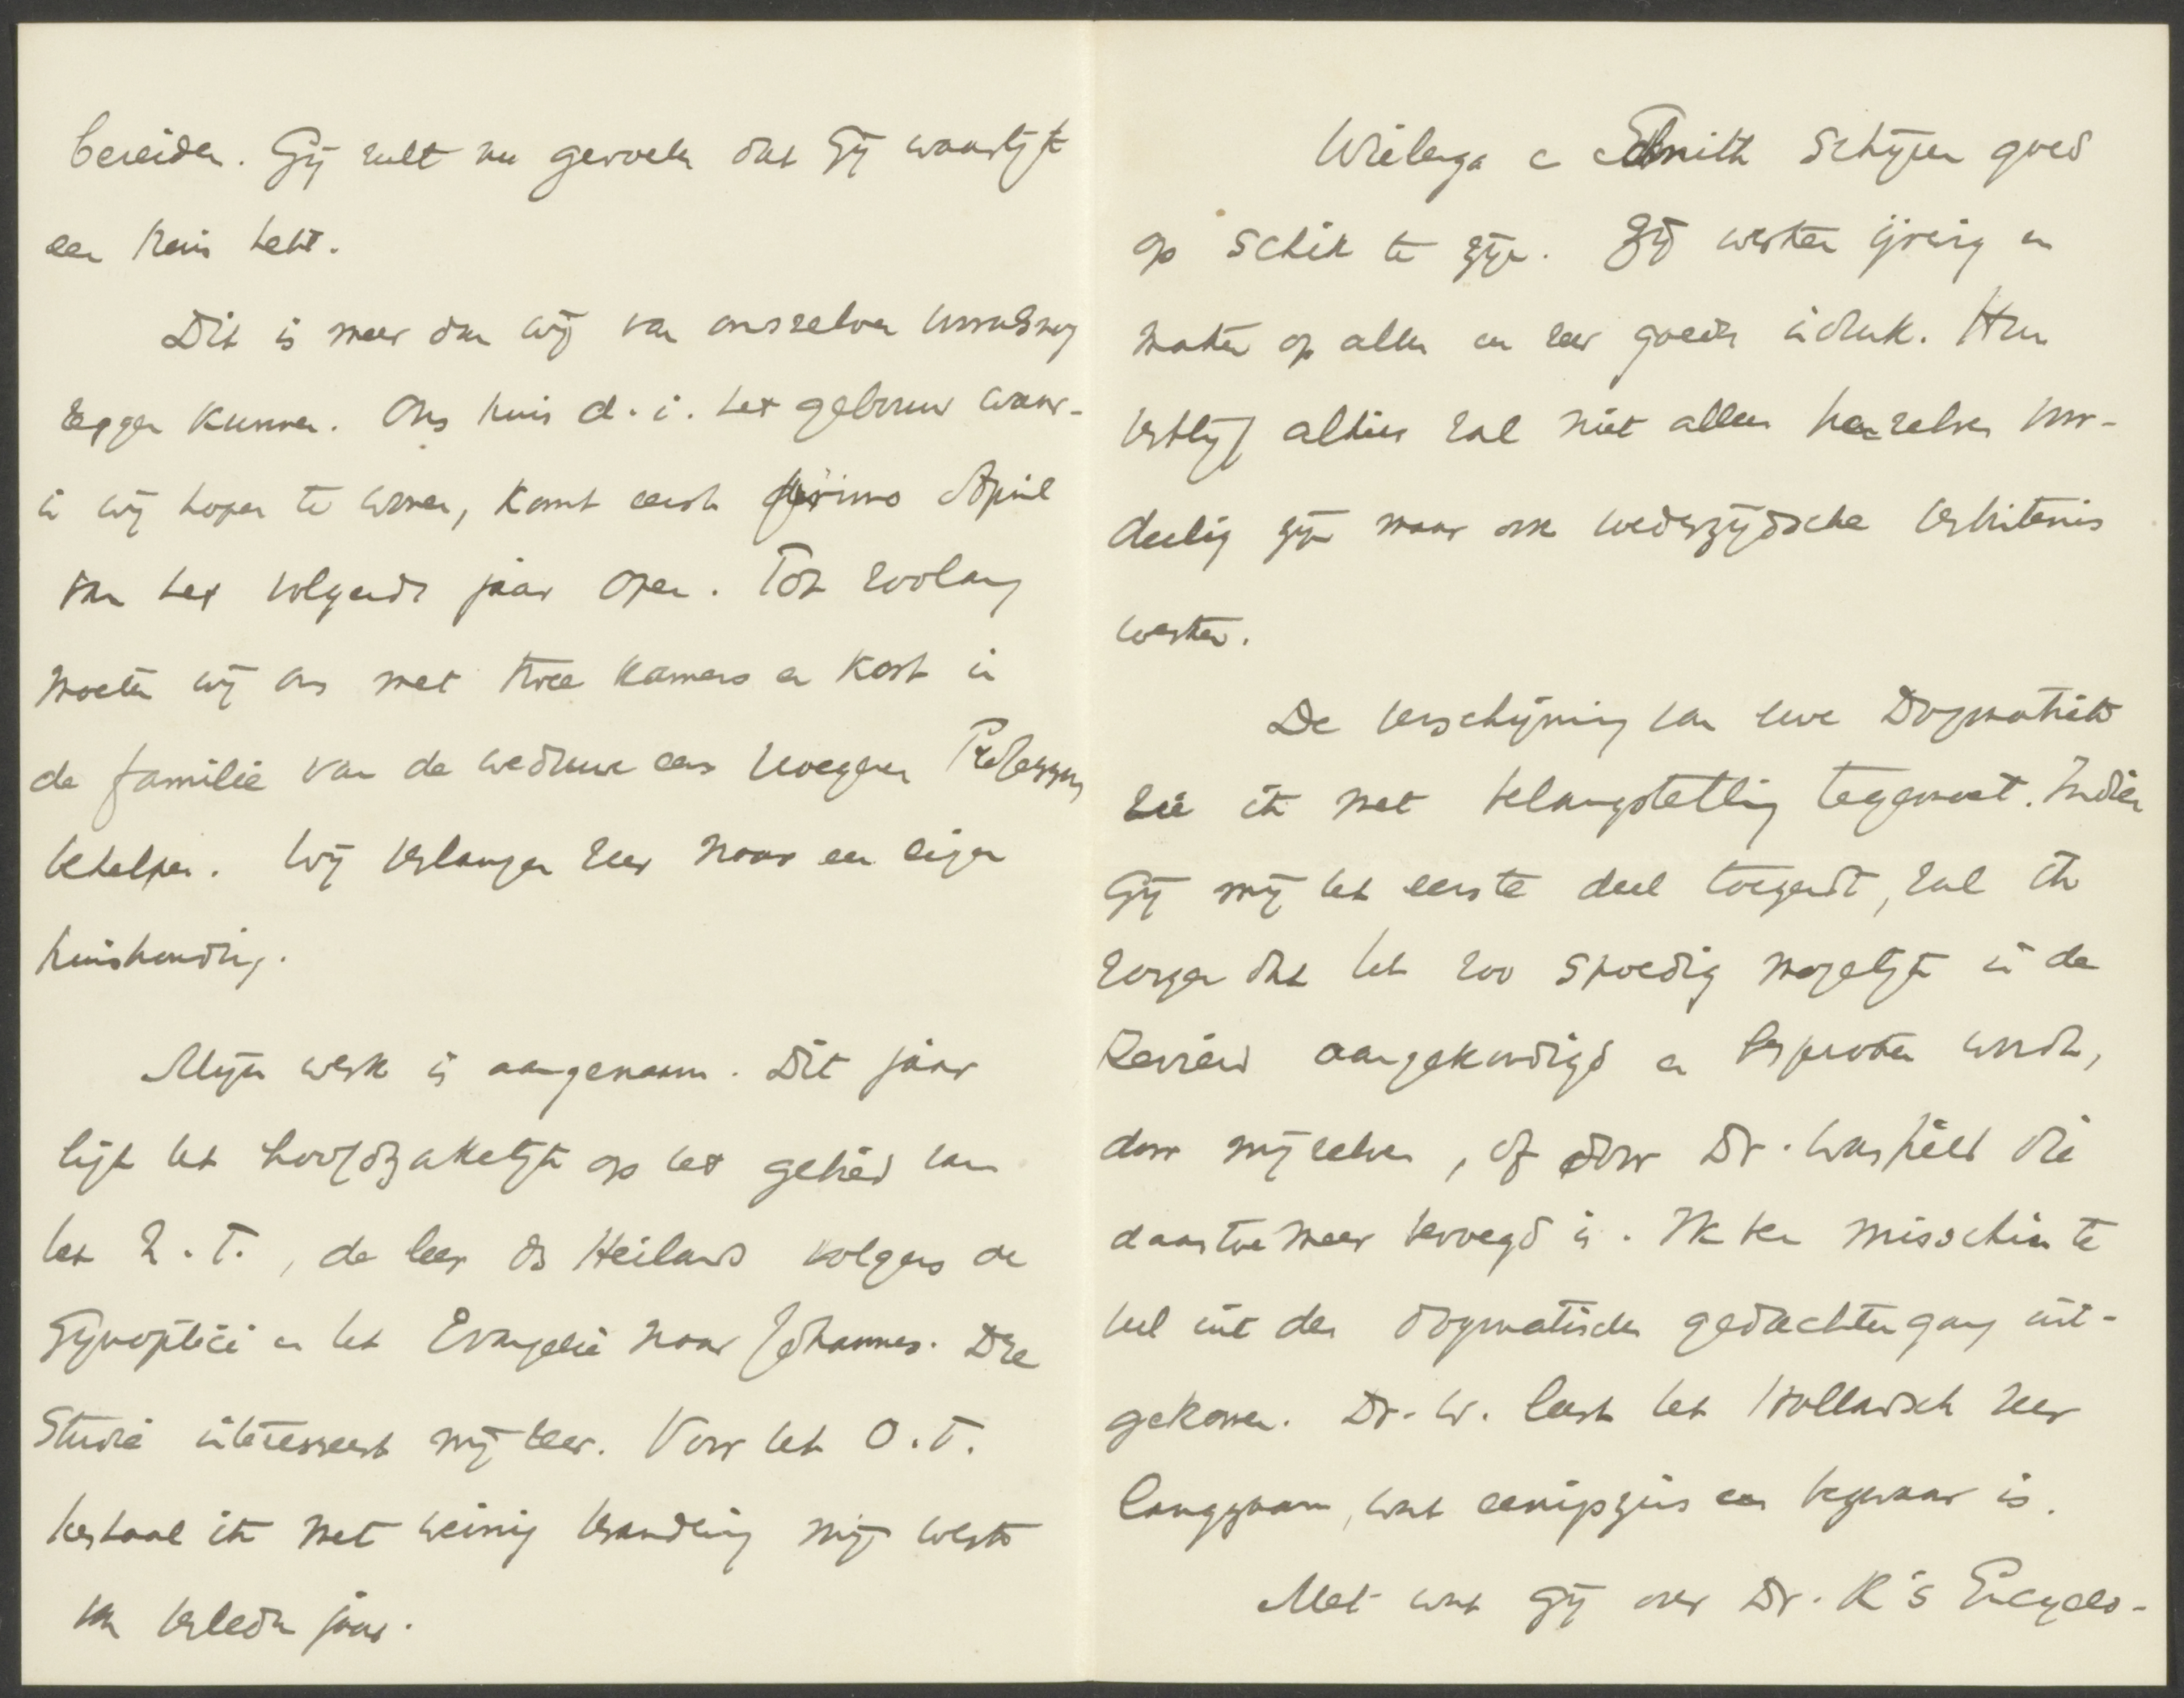 bereiden. Gij zult nu gevoelen dat Gij waarlijk
een huis hebt.
Dit is meer dan wij van onszelven vooralsnog
zeggen kunnen. Ons huis d. i. het gebouw waar-
in wij hopen te wonen, komt eerst primo April
van het volgende jaar open. Tot zoolang
moeten wij ons met twee kamers en kost in
de familie van de weduwe eens vroegeren Professors
behelpen. Wij verlangen zeer naar een eigen
huishouding.
Mijn werk is aangenaam. Dit jaar
ligt het hoofdzakelijk op het gebied van
het N. T., de leer des Heilands volgens de
Synoptici en het Evangelie naar Johannes. Die
Studie interesseert mij zeer. Voor het O. T.
herhaal ik met weinig verandering mijn werk
van verleden jaar.
Wielenga en Smith schijnen goed
op schik te zijn. Zij werken ijverig en
maken op allen een zeer goeden indruk. Hun
verblijf alhier zal niet alleen henzelven voor-
deelig zijn maar ook wederzijdsche
werken.
De verschijning van uwe Dogmatiek
zie ik met belangstelling tegemoet. Indien
Gij mij het eerste deel toezendt, zal ik
zorgen dat het zoo spoedig mogelijk in de
Review aangekondigd en besproken wordt,
door mijzelven, of door Dr. Warfield die
daartoe meer bevoegd is. Ik ben misschien te
veel uit den dogmatischen gedachtengang uit-
gekomen. Dr. W. leest het Hollandsch zeer
langzaam, wat eenigszins een bezwaar is.
Met wat Gij over Dr. K's Encyclo-